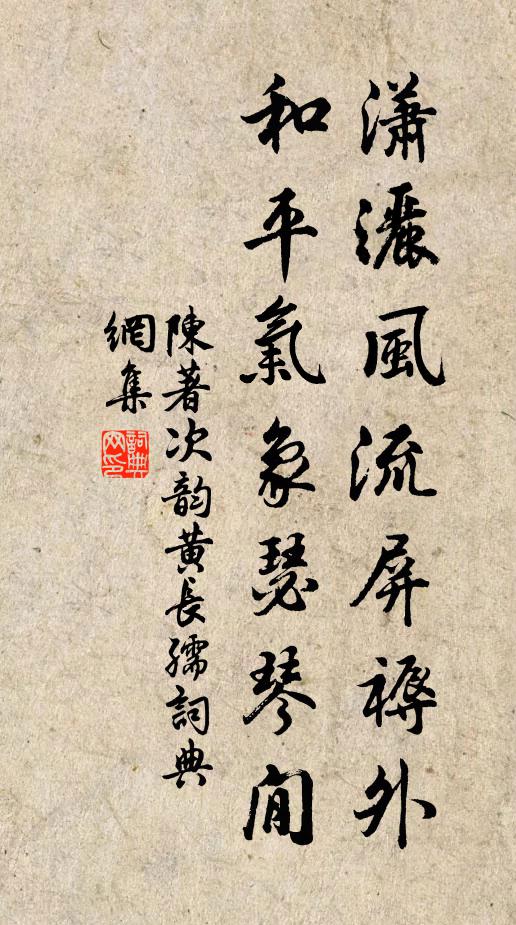 瀟灑風流屏褥外
和平氣象瑟琴間
陳著次韵黃長孺詞典
網集
詞典網印